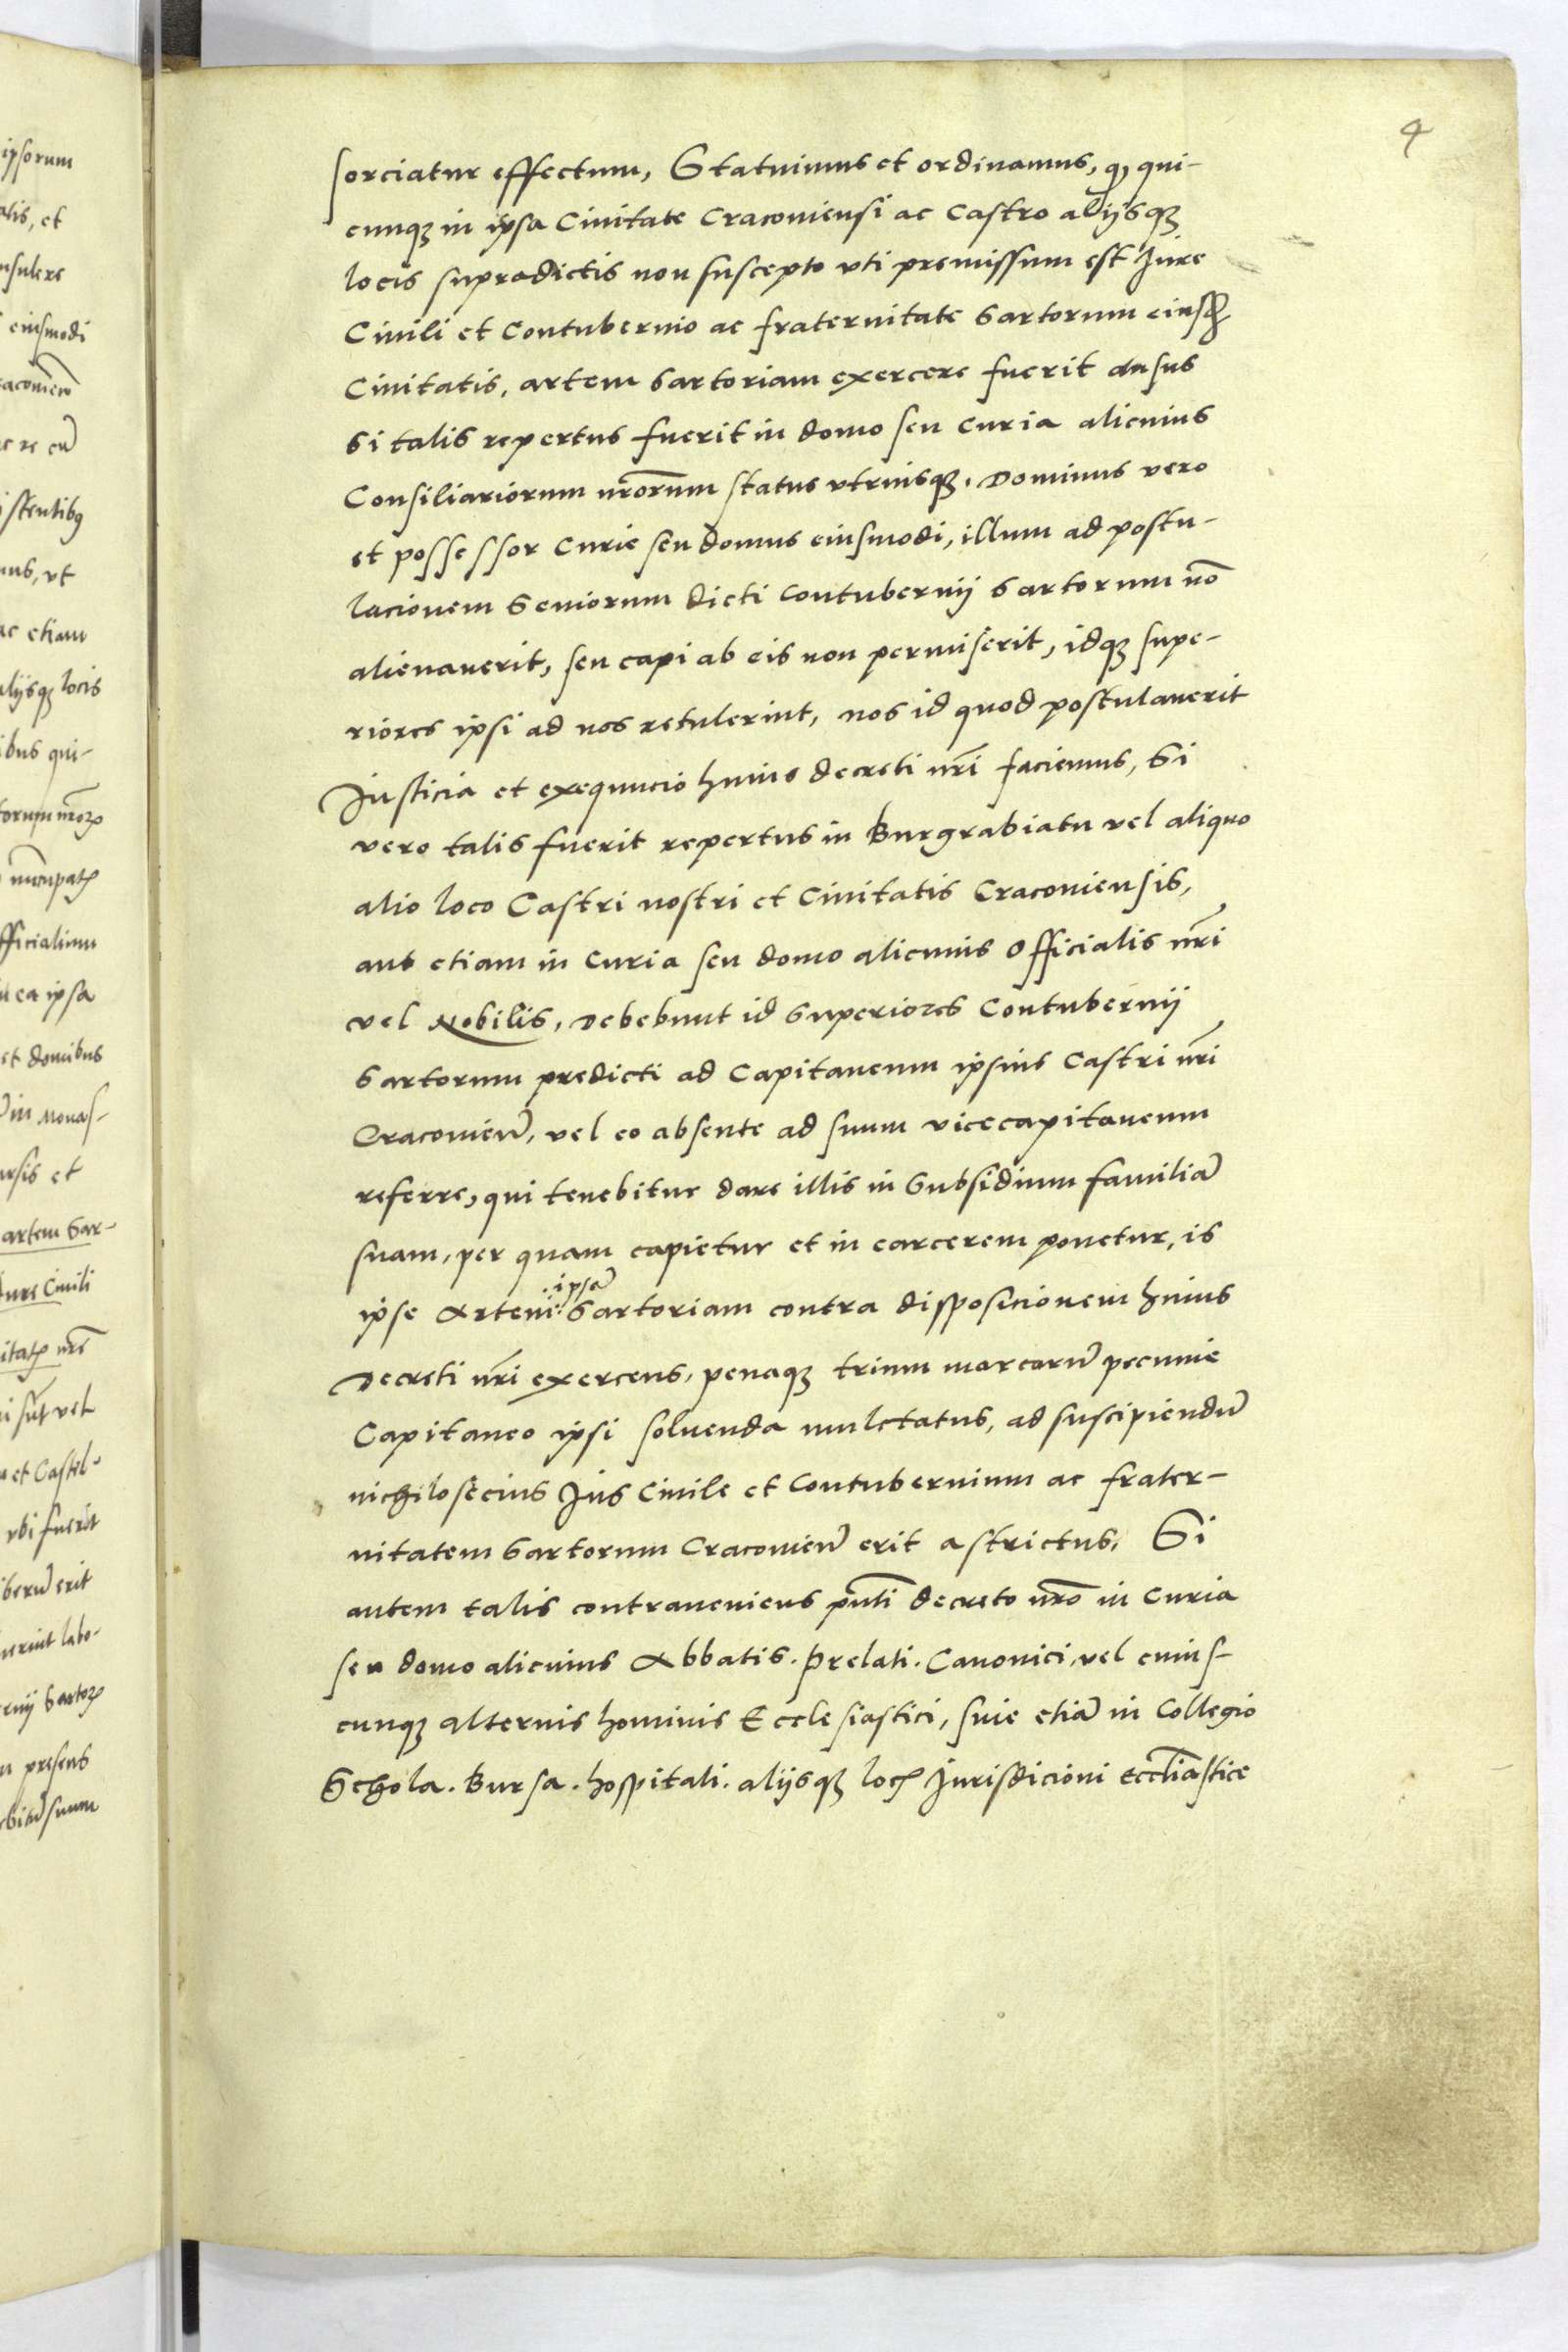 4
sorciatur effectum, Statuimus et ordinamus, q̢ qui-
cunqꝫ in ipsa Ciuitate Cracouiensi ac Castro alijsqꝫ
locis supradictis non suscepto vti premissum est Jure
Ciuili et Contubernio ac fraternitate Sartorum eiusd
Ciuitatis, artem Sartoriam exercere fuerit ausus
Si talis repertus fuerit in domo seu Curia alicuius
Consiliariorum nr̃orum status vtriusqꝫ. Dominus vero
et possessor Curie seu domus eiusmodi, illum ad postu-
lacionem Seniorum dicti Contubernij Sartorum nõ
alienauerit, seu capi ab eis non permiserit, idqꝫ supe-
riores ipsi ad nos retulerint, nos id quod postulauerit
Justicia et exequucio huius decreti nr̃i faciemus, Si
vero talis fuerit repertus in Burgrabiatu vel aliquo
alio loco Castri nostri et Ciuitatis Cracouiensis,
aut etiam in Curia seu domo alicuius Officialis nr̃i
vel Nobilis, Debebunt id Superiores Contubernij
Sartorum predicti ad Capitaneum ipsius Castri nr̃i
Cracouieñ, vel eo absente ad suum vicecapitaneum
referre, qui tenebitur dare illis in Subsidium familiã
suam, per quam capietur et in carcerem ponetur, is
ipsã
ipse Artem Sartoriam contra disposicionem huius
Decreti nr̃i exercens, penaqꝫ trium marcarũ pecunie
Capitaneo ipsi soluenda mulctatus, ad suscipiendũ
nichilosecius Jus Ciuile et Contubernium ac frater-
nitatem Sartorum Cracouieñ erit astrictus. Si
autem talis contraueniens pñti decreto nr̃o in Curia
seu domo alicuius Abbatis. Prelati. Canonici, vel cuius-
cunqꝫ alterius hominis Ecclesiastici, siue etiã in Collegio
Schola. Bursa. hospitali. alijsqꝫ locꝭ Jurisdicioni eccl̃iastice
ipsorum
alis, et
nsulere
eiusmodi
istentibꝰ
mus, vt
ac etiam
alijsqꝫ locis
ibus qui-
fficialium
ea ipsa
et domibus
in Monas-
ursis et
artem Sar-
Jure Ciuili
et Castel-
vbi fuerit
iberũ erit
uerint labo-
presens
suum